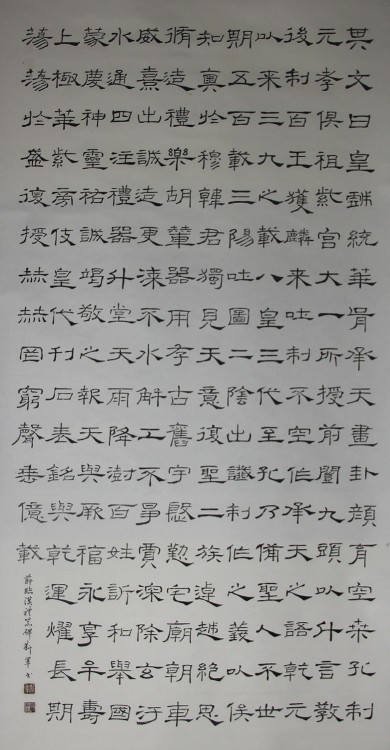 其文曰皇戲統華胥承天畫卦顏育空桑孔制
元孝俱祖紫宮大一所授前闓九頭以升言教
後制百王獲麟來吐制不空作承天之語乾元
以來三九之載八皇三代至孔乃備聖人不世
期五百載三陽吐圖二陰出讖制作之義以俟
知奧於穆韓君獨見天意復聖二族逴越絕思
脩造禮樂胡輦器用存古舊宇慇懃宅廟朝車
威熹出誠造更漆不水解工不爭賈深除玄汙
水通四注禮器升堂天雨降澍百姓訢和舉國
蒙慶神靈祐誠竭敬之報天與厥福永享牟壽
上極華紫旁伎皇代刊石表銘與乾運燿長期
蕩蕩於盛復授赫赫罔窮聲垂億載
節臨漢禮器碑